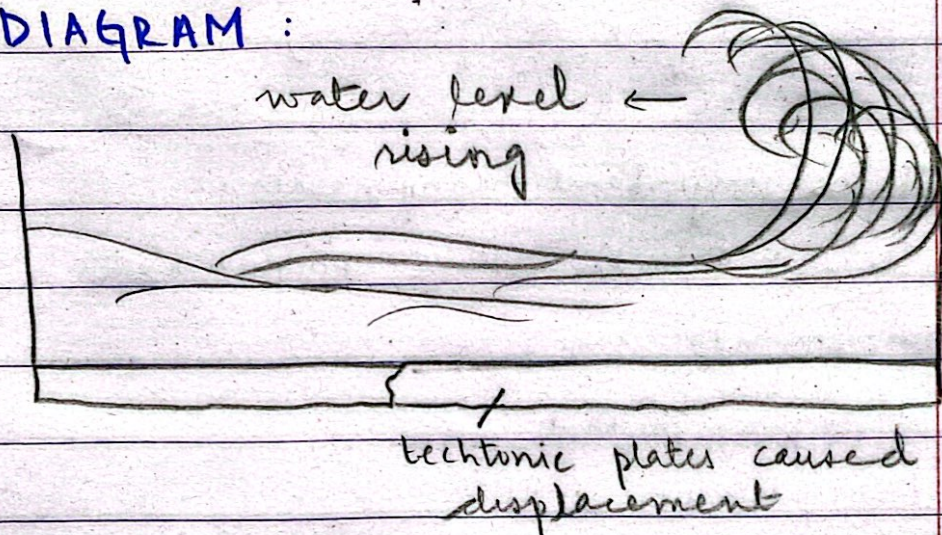 DIAGRAM :
water level ←
rising
techtonic plates caused
displacement